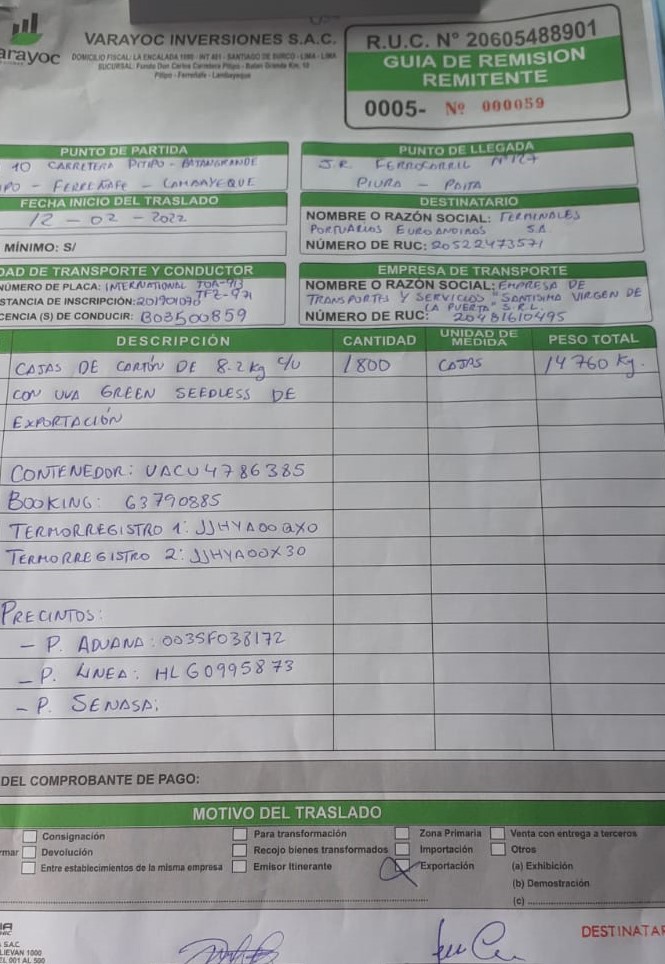 VARAYOC INVERSIONES S.A.C.
arayoc
DOMICILIO FISCAL: LA ENCALADA 1090 - INT 401 - SANTIAGO DE SURCO - LIMA - LIMA
SUCURSAL: Fundo Don Carlos Carretera Pitipo - Batan Grande Km. 10
Pitipo - Ferreñafe - Lambayeque
R.U.C. N° 20605488901
GUIA DE REMISION
REMITENTE
0005- Nº 000059
PUNTO DE PARTIDA
10 CARRETERA PITIPO - BATANGRANDE
IPO - FERREÑAFE - LAMBAYEQUE
PUNTO DE LLEGADA
J.R. FERROCARRIL N°127
PIURA - PAITA
FECHA INICIO DEL TRASLADO
12 - 02 - 2022
MÍNIMO: S/
DESTINATARIO
NOMBRE O RAZÓN SOCIAL: TERMINALES
PORTUARIOS EUROANDINOS SA
NÚMERO DE RUC: 20522473571
DAD DE TRANSPORTE Y CONDUCTOR
NÚMERO DE PLACA: INTERNATIONAL
TFZ-971
STANCIA DE INSCRIPCIÓN:
CENCIA (S) DE CONDUCIR: B03500859
EMPRESA DE TRANSPORTE
NOMBRE O RAZÓN SOCIAL: EMPRESA DE
TRANSPORTES Y SERVICIOS "SANTISIMA VIRGEN DE
LA PUERTA" S.R.L.
NÚMERO DE RUC: 20481610495
DESCRIPCIÓN CANTIDAD UNIDAD DE MEDIDA PESO TOTAL
CAJAS DE CARTÓN DE 8.2 kg c/u 1800 CAJAS 14760 Kg.
CON UVA GREEN SEEDLESS DE
EXPORTACIÓN
CONTENEDOR: UACU4786385
BOOKING: 63790885
TERMORREGISTRO 1: JJHYA00QX0
TERMORREGISTRO 2: JJHYA00X30
PRECINTOS:
- P. ADUANA: 0035F038172
- P. LINEA: HLG0995873
- P. SENASA:
DEL COMPROBANTE DE PAGO:
MOTIVO DEL TRASLADO
Consignación Para transformación Zona Primaria Venta con entrega a terceros
rmar Devolución Recojo bienes transformados Importación Otros
Entre establecimientos de la misma empresa Emisor Itinerante Exportación (a) Exhibición
(b) Demostración
(c)
S.A.C
LIEVAN 1000
EL 001 AL 500
DESTINATAR